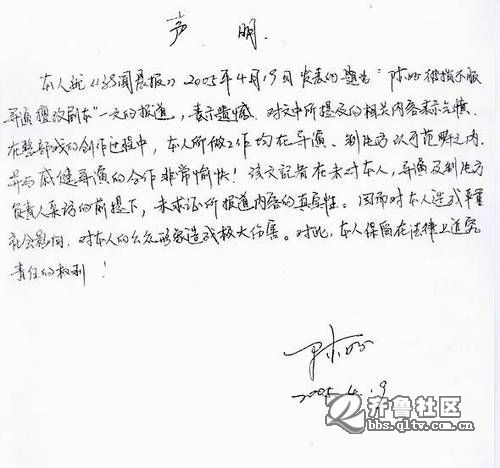 声 明.
本人就《新闻晨报》2005年4月19日发表的题为“陈好被指不服
导演擅改剧本”一文的报道，表示遗憾。对文中所提及的相关内容表示气愤。
在整部戏的创作过程中，本人所做工作均在导演、制片方认可范畴之内，
并与 健导演的合作非常愉快！该文记者在未对本人，导演及制片方
负责人采访的前提下，未求证所报道内容的真实性。因而对本人造成严重
社会影响，对本人的公众形象造成极大伤害。对此，本人保留在法律上追究
责任的权利！
陈好
2005.4.19
齐鲁社区
bbs.qltv.com.cn